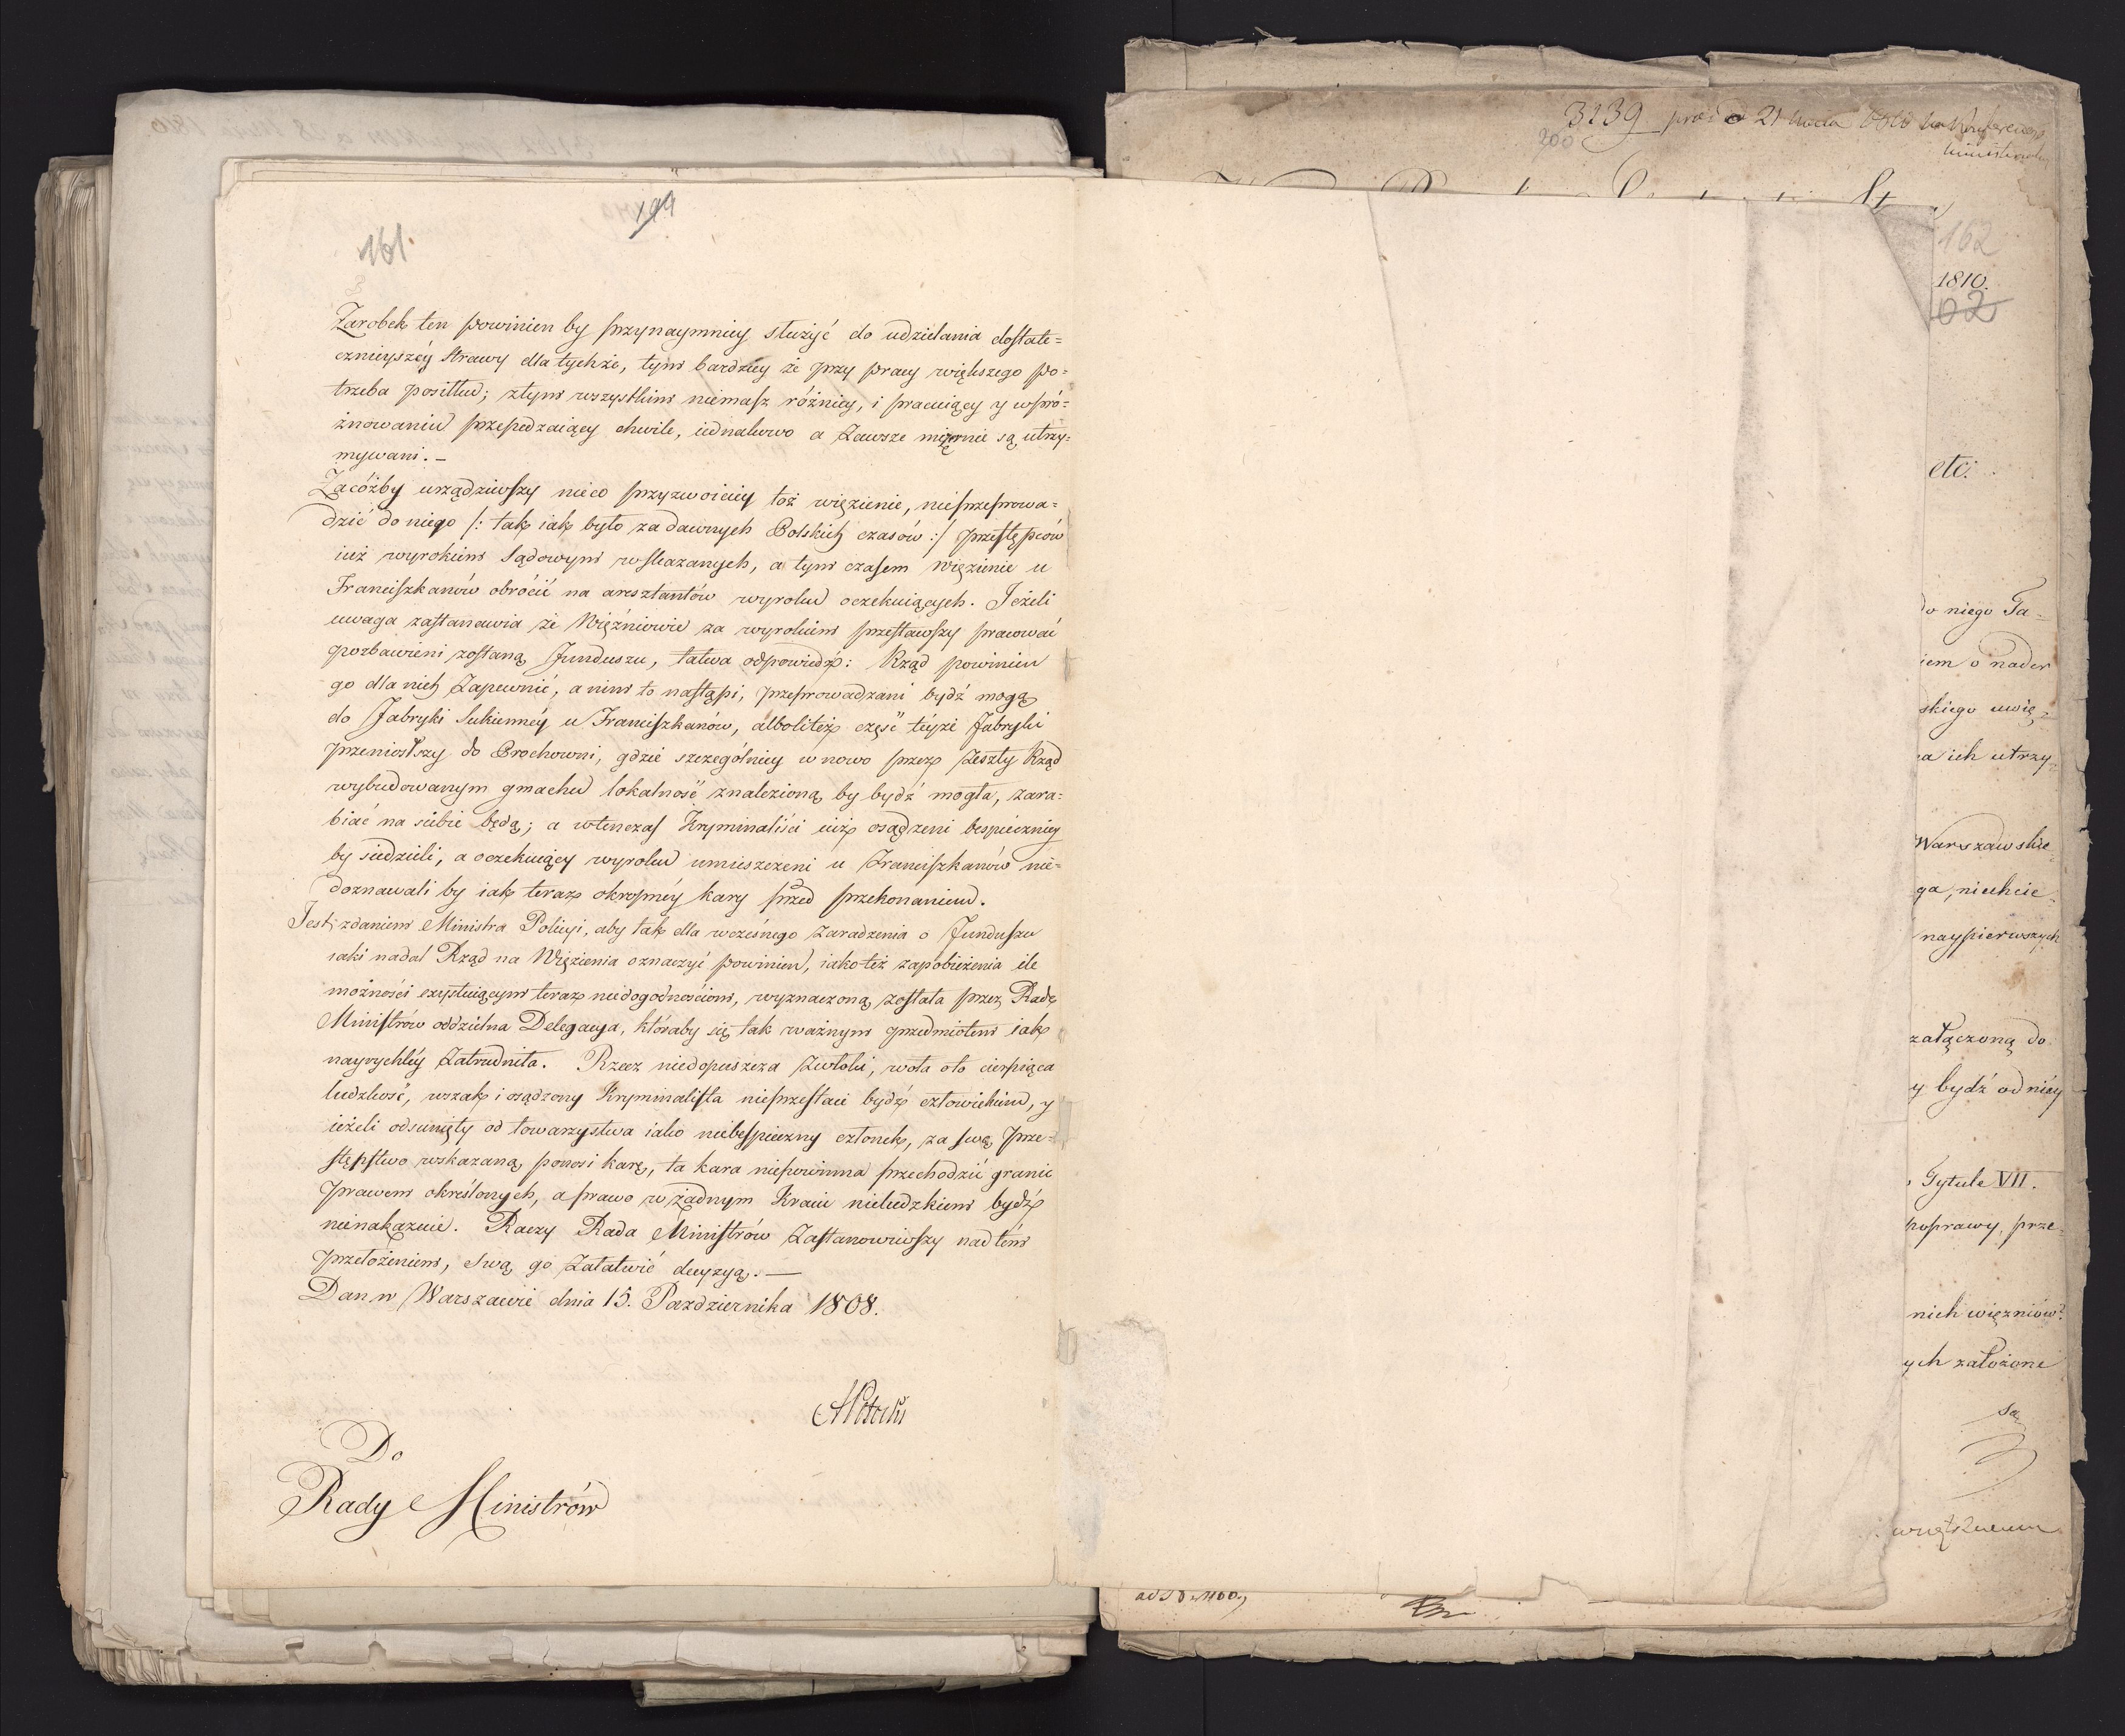 199
161.
Zarobek ten powinien by przynaymniey służyć do udzielania dostate=
cznieyszéy strawy dla tychże, tym bardziey że przy pracy większego po=
trzeba posiłku; ztym wszystkim niemasz różnicy, i pracuiący y w pró=
żnowaniu przepędzaiący chwile, iednakowo a zawsze mizernie są utrzy=
mywani. –
Zacóżby urządziwszy nieco przyzwoiciey toż więzienie, nieprzeprowa=
dzić do niego /: tak iak było za dawnych Polskich czasów :/ przestępców
iuż wyrokiem Sądowym wskazanych, a tym czasem więzienie u
Franciszkanów obrócić na aresztantów wyroku oczekuiących. Jeżeli
uwaga zastanawia że Więźniowie za wyrokiem przestawszy pracować
pozbawieni zostaną funduszu, łatwa odpowiedź: Rząd powinien
go dla nich zapewnić, a nim to nastąpi, przeprowadzani bydź mogą
do Fabryki Sukiennéy u Franciszkanów, albo liteż część téyże Fabryki
przeniosłszy do Prochowni, gdzie szczególniey w nowo przez zeszły Rząd
wybudowanym gmachu lokalność znalezioną by bydź mogła, zara=
biać na siebie będą; a wtenczas Kryminaliści iuż osądzeni bespieczniey
by siedzieli, a oczekuiący wyroku umieszczeni u Franciszkanów nie=
doznawali by iak teraz okropnéy kary przed przekonaniem.
Jest zdaniem Ministra Policyi, aby tak dla wczesnego zaradzenia o Funduszu
iaki nadal Rząd na Więzienia oznaczyć powinien, iako też zapobieżenia ile
możności exystuiącym teraz niedogodnościom, wyznaczoną została przez Radę
Ministrów oddzielna Delegacya, któraby się tak ważnym przedmiotem iak
nayrychléy zatrudniła. Rzecz niedopuszcza zwłoki, woła oto cierpiąca
ludzkość, wszak i osądzony Kryminalista nieprzestaie bydź człowiekiem, y
ieżeli odsunięty od towarzystwa iako niebespieczny członek, za swą prze=
stępstwo wskazaną ponosi karę, ta kara niepowinna przechodzić granic
prawem określonych, a prawo w żadnym Kraiu nieludzkim bydź
nienakazuie. Raczy Rada Ministrów zastanowiwszy nad tém
przełożeniem, swą go załatwić decyzyą. —
Dan w Warszawie dnia 15. Października 1808.
APotocki
Do
Rady Ministrów
3239
200
162
1810.
62
etc:
do niego Ta=
iem o nader
skiego uwię=
a ich utrzy=
Warszawskie=
ga, niechcie
naypierwszych
załączoną do
y bydź od niéy
Tytule VII.
poprawy, prze=
nich więzniów?
ych założone
są